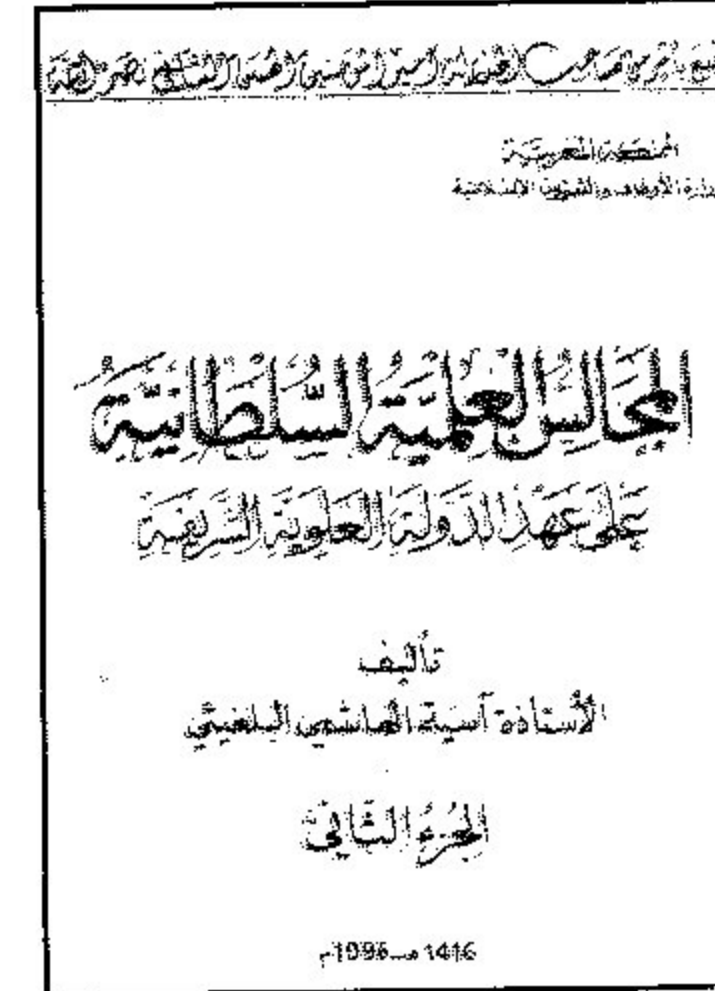 طبع بأمر من صاحب الجلالة أمير المؤمنين الحسن الثاني نصره الله
المملكة المغربية
وزارة الأوقاف والشؤون الإسلامية
المجَالسُ العِلميَّةُ السُّلطانيَّةُ
عَلى عَهْدِ الدَّولَةِ العَلَويَّةِ الشَّريفَةِ
تأليف
الأستاذة آسية الهاشمي البلغيثي
الجُزءُ الثَّاني
1416هـ-1996م